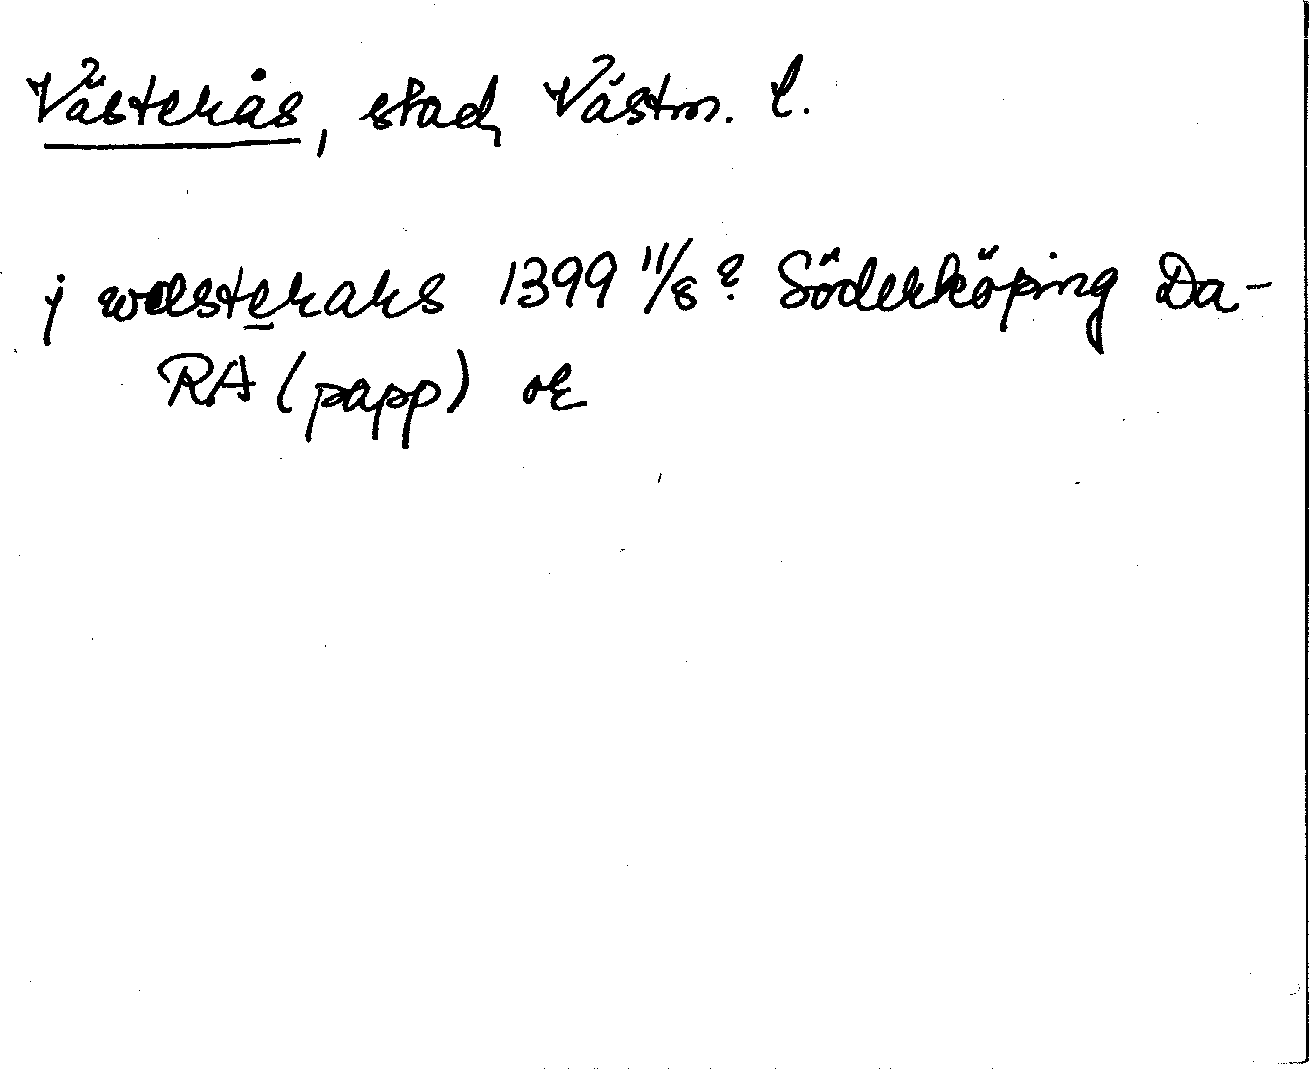 Västerås, stad, Västm. l.
j wæsterars 1399 11/8? Söderköping Da-
RA (papp) or